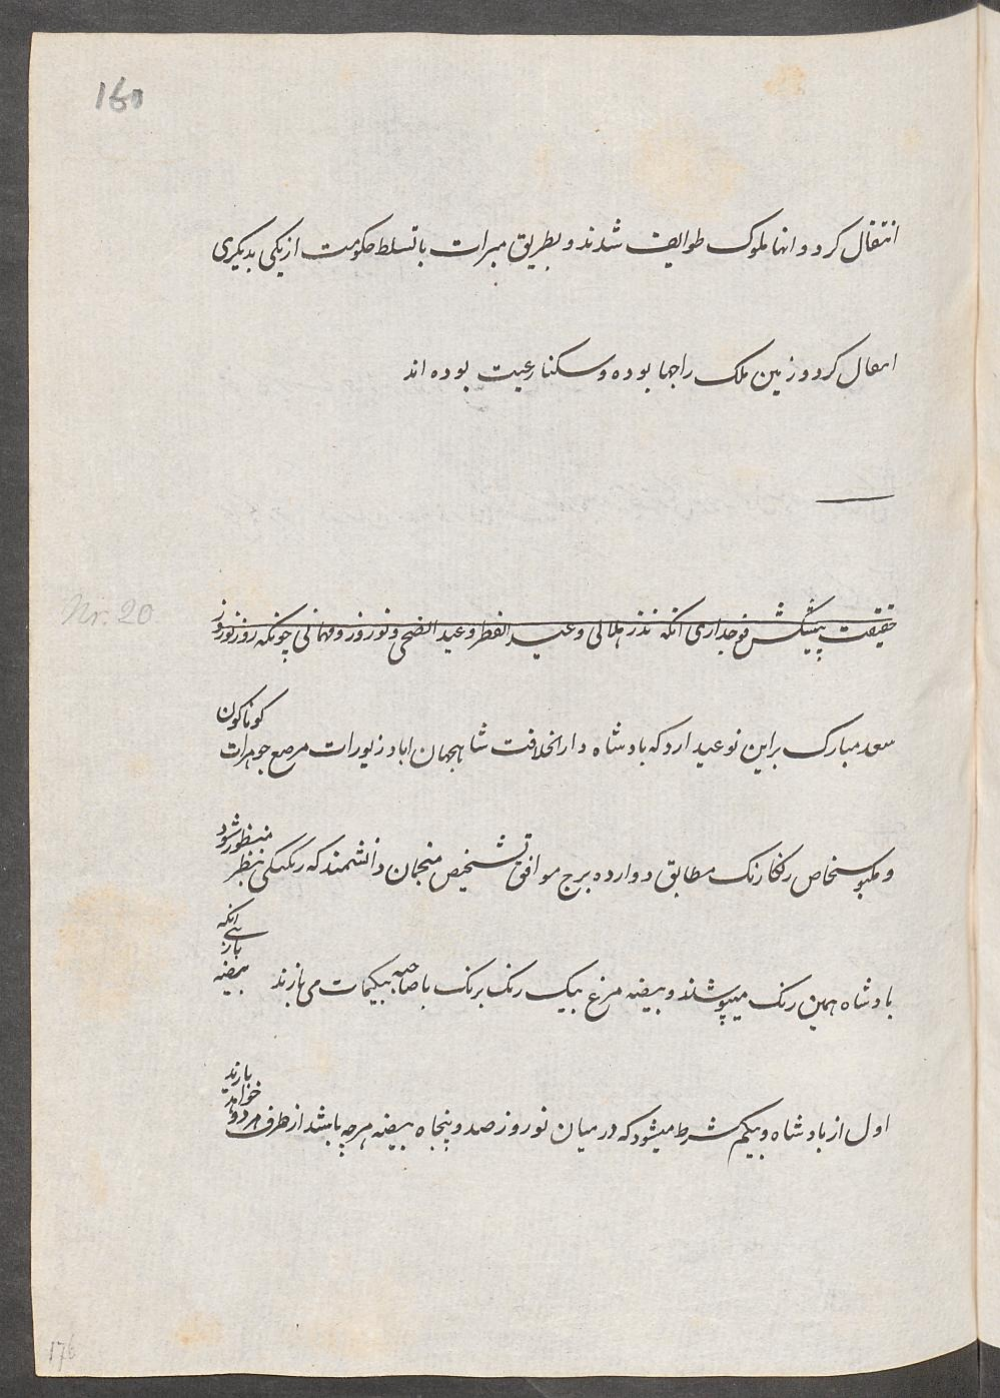 160
انتقال کرد و انها ملوک طوایف شدند و بطریق میراث با تسلط حکومت از یکی بدیگری
انتقال کرد و زمین ملک راجها بوده و سکنا رعیت بوده اند
Nr. 20
حقیقت پیشکش فوجداری انکه نذر هلالی و عید الفطر و عید الضحی و نوروز و مهمانی چونکه روز نوروز
سعد مبارک براین نوعید ارد که بادشاه دارالخلافت شاهجهان اباد زیورات مرصع جوهرات کوناکون
و ملبوسخاص رنکارنک مطابق دوازده برج موافق تشخیص منجمان دانشمند که رنکیکی بنظر منظور شود
بادشاه همین رنک میپوشند و بیضه مرغ بیک رنک برنک با صاحبه بیکمات می بازند بیضه بازی انکه
اول از بادشاه و بیکم شرط میشود که درمیان نوروز صد و پنجاه بیضه هرچه باشد از طرف هردو خواهند بازند
176